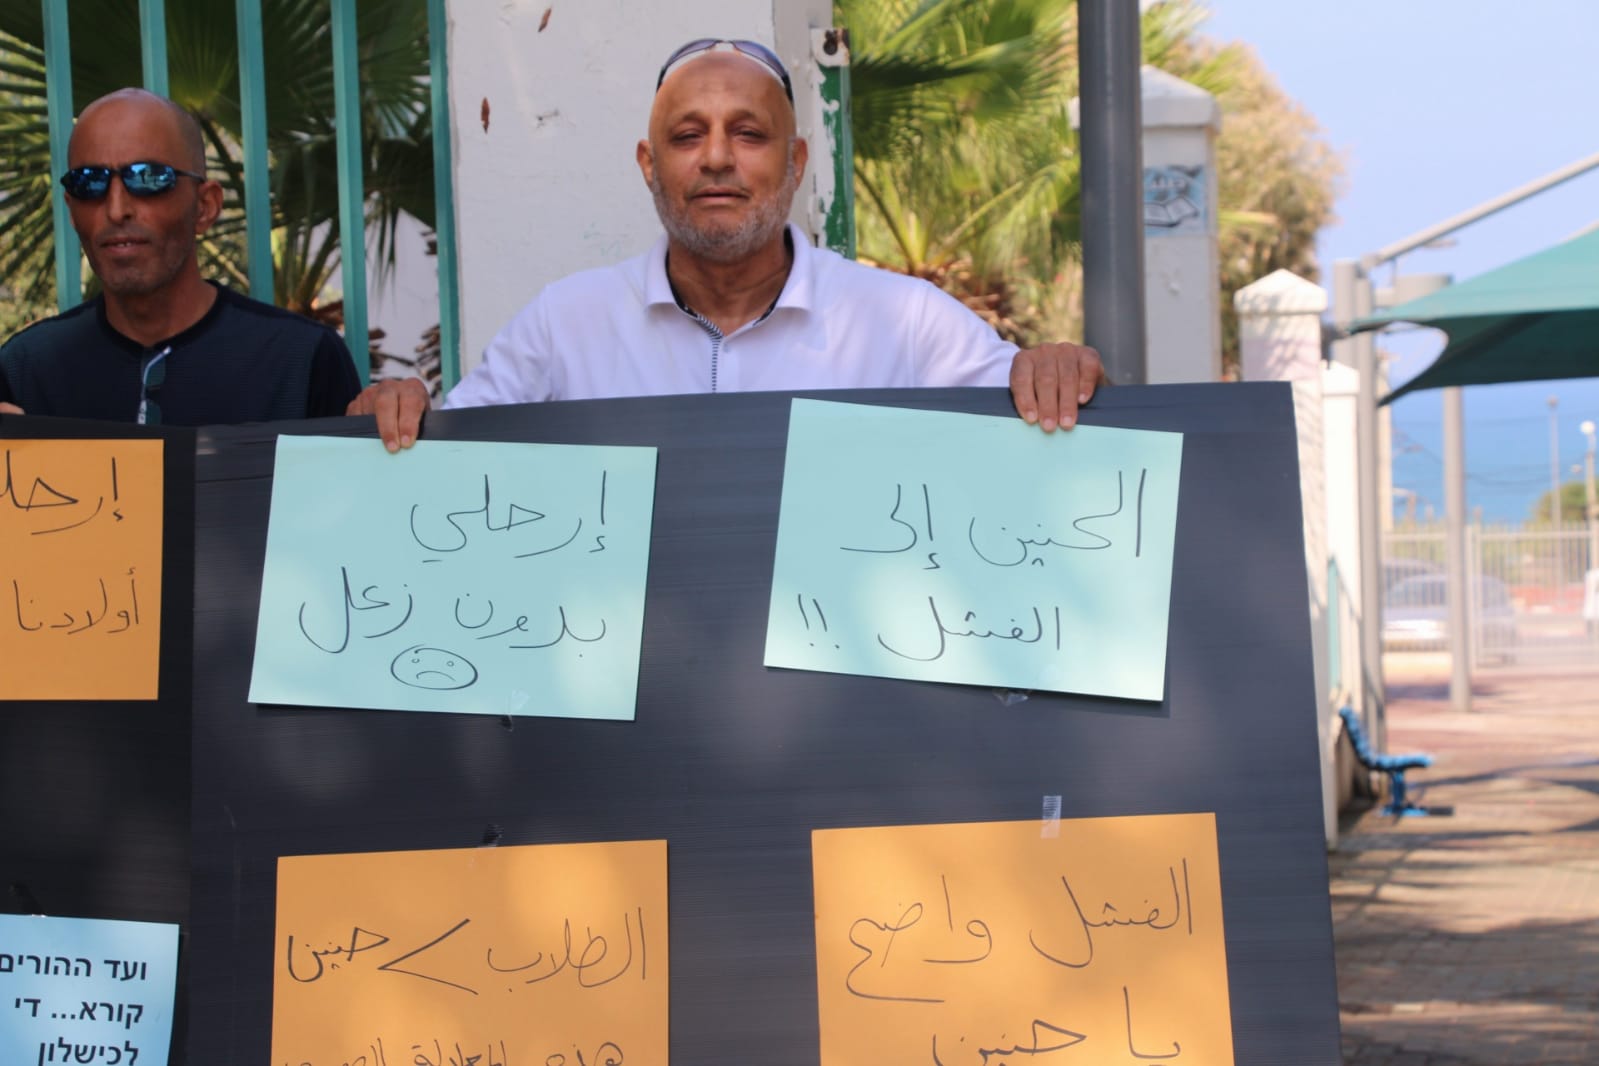 الحنين إلى
الفشل !!
إرحلي
بدون زعل
أولادنا
الفشل واضح
يا حنين
الطلاب > حنين
هذه المعادلة
ועד ההורים
קורא... די
לכישלון